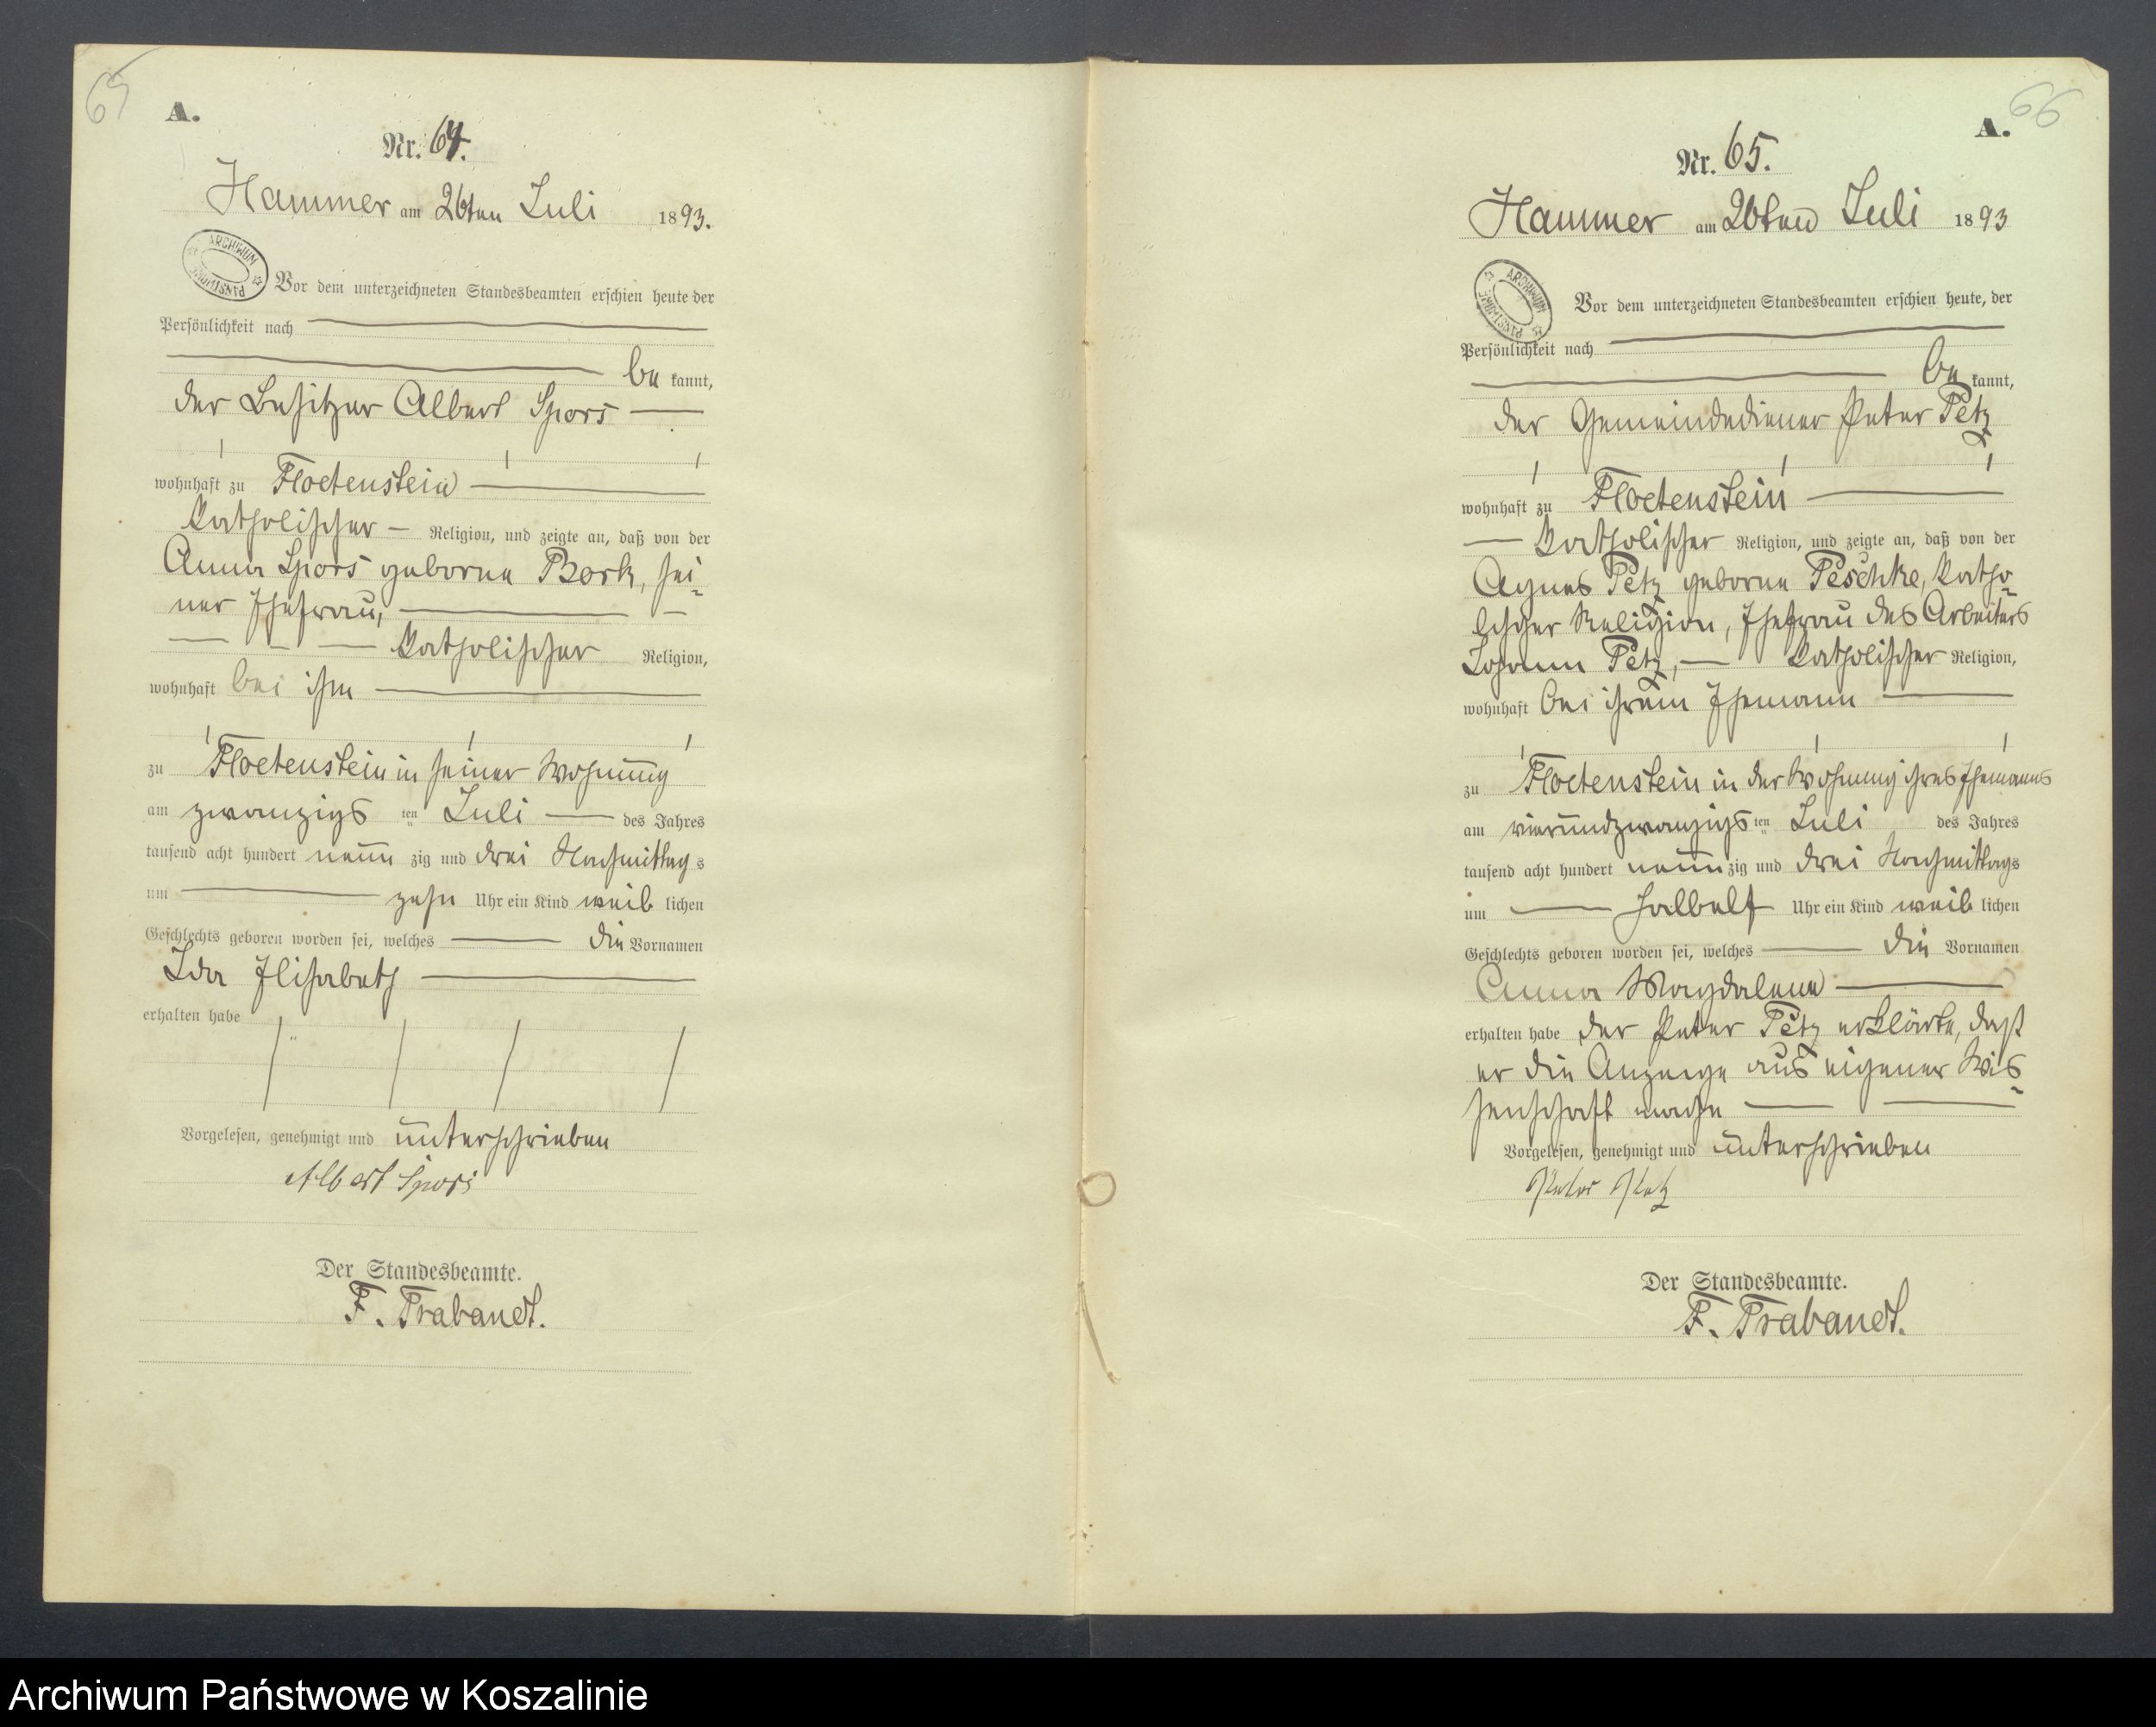 65
A.
Nr. 64.
Hammer am 26ten Juli 1893.
ARCHIWUM PAŃSTWOWE
Vor dem unterzeichneten Standesbeamten erschien heute der
Persönlichkeit nach
be kannt,
der Besitzer Albert Spors
wohnhaft zu Floetenstein
katholischer Religion, und zeigte an, daß von der
Anna Spors geborne Bork, sei-
ner Ehefrau,
katholischer Religion,
wohnhaft bei ihm
zu Floetenstein in seiner Wohnung
am zwanzigs ten Juli des Jahres
tausend acht hundert neun zig und drei Nachmittag s
um zehn Uhr ein Kind weib lichen
Geschlechts geboren worden sei, welches die Vornamen
Ida Elisabeth
erhalten habe
Vorgelesen, genehmigt und unterschrieben
Albert Spors
Der Standesbeamte.
F. Trabandt.
66
A.
Nr. 65.
Hammer am 26ten Juli 1893
ARCHIWUM PAŃSTWOWE
Vor dem unterzeichneten Standesbeamten erschien heute, der
Persönlichkeit nach
be kannt,
der Gemeindediener Peter Petz
wohnhaft zu Floetenstein
katholischer Religion, und zeigte an, daß von der
Agnes Petz geborne Peschke, katho-
lischer Religion, Ehefrau des Arbeiters
Johann Petz, katholischer Religion,
wohnhaft bei ihrem Ehemann
zu Floetenstein in der Wohnung ihres Ehemanns
am vierundzwanzigs ten Juli des Jahres
tausend acht hundert neun zig und drei Nachmittags
um halbelf Uhr ein Kind weib lichen
Geschlechts geboren worden sei, welches die Vornamen
Anna Magdalene
erhalten habe der Peter Petz erklärte, daß
er die Anzeige aus eigener Wis-
senschaft mache
Vorgelesen, genehmigt und unterschrieben
Peter Petz
Der Standesbeamte.
F. Trabandt.
Archiwum Państwowe w Koszalinie